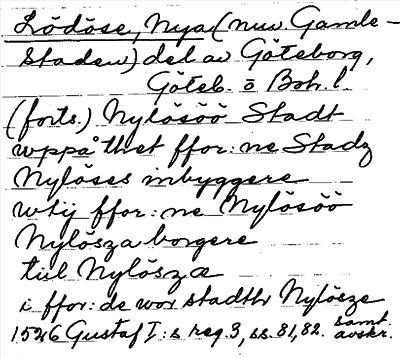 Lödöse, Nya (nuv. Gamle-
staden) del av Göteborg,
Göteb. o Boh. l.
(forts.) Nylösöö Stadt
wppå thet ffor: ne Stadz
Nylöses inbyggere
wtij ffor: ne Nylösöö
Nylösza borgere
tiil Nylöszæ
i ffor: de wor stadthr Nylösze
1526 Gustaf I: s reg. 3, ss. 81, 82. samt. avskr.